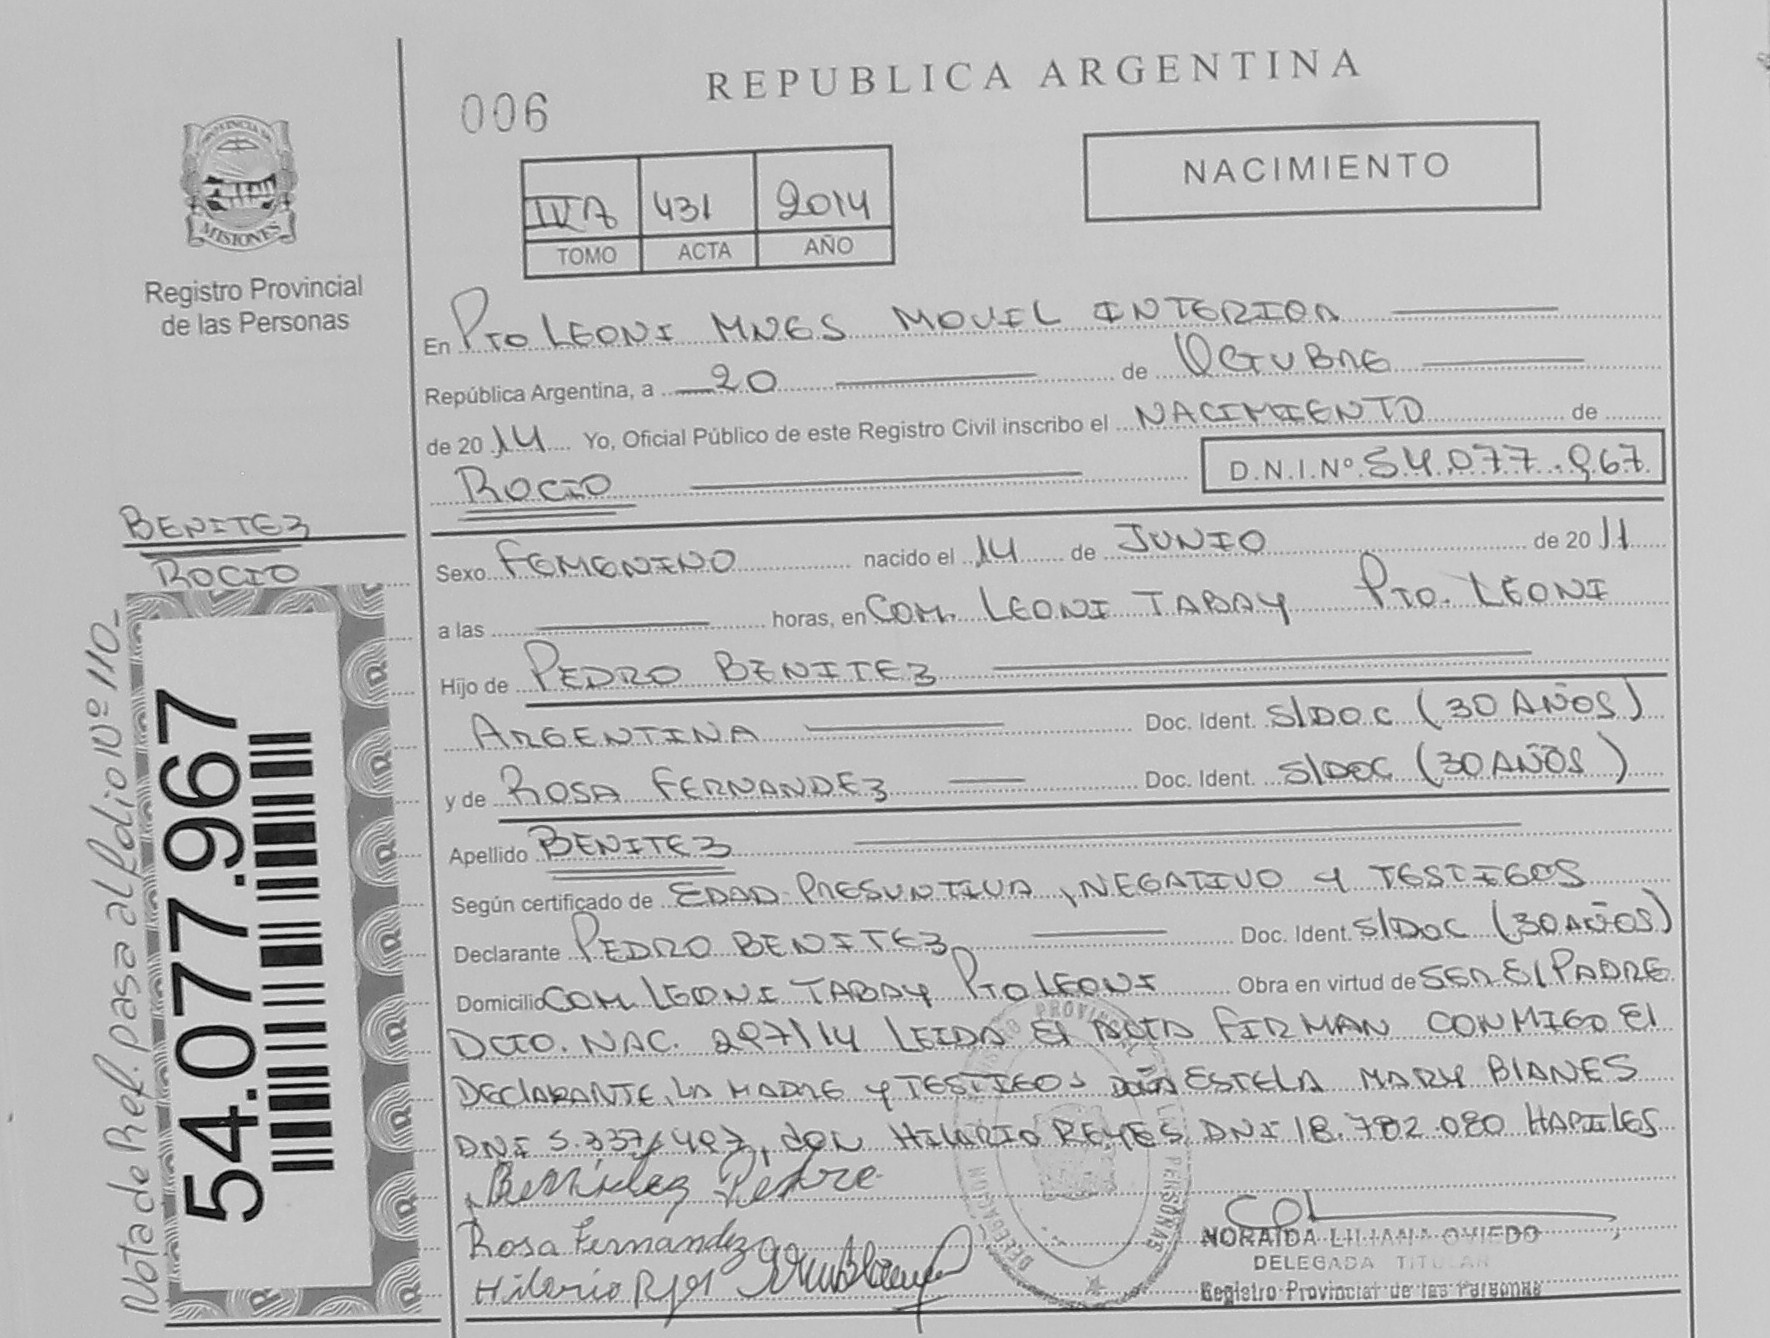 REPUBLICA ARGENTINA
006
NACIMIENTO
IVA 431 2014
TOMO ACTA AÑO
PROVINCIA DE
MISIONES
Registro Provincial
de las Personas
En PTO LEONI MNES MOVIL INTERIOR
República Argentina, a 20 de OCTUBRE
de 2014 Yo, Oficial Público de este Registro Civil inscribo el NACIMIENTO de
ROCIO D.N.I.Nº 54.077.967
BENITEZ
ROCIO
Sexo FEMENINO nacido el 14 de JUNIO de 2011
a las horas, en COM. LEONI TABAY PTO. LEONI
Hijo de PEDRO BENITEZ
ARGENTINA Doc. Ident. S/DOC (30 AÑOS)
y de ROSA FERNANDEZ Doc. Ident. S/DOC (30 AÑOS)
Apellido BENITEZ
Según certificado de EDAD PRESUNTIVA, NEGATIVO Y TESTIGOS
Declarante PEDRO BENITEZ Doc. Ident. S/DOC (30 AÑOS)
Domicilio COM. LEONI TABAY PTO LEONI Obra en virtud de SER El PADRE
DCTO. NAC. 297/14 LEIDA El ACTA FIRMAN CONMIGO El
DEClARANTE, LA MADRE Y TESTIGOS DOÑA ESTELA MARY BIANES
DNI 5.337.497, dON HILARIO REYES DNI 18.782.080 HABILES
Benidez Pedre
Rosa Fernandez
Hilario
NORAIDA LILIANA OVIEDO
DELEGADA TITULAR
Registro Provincial de las Personas
54.077.967
Nota de Ref. pasa al folio Nº 110